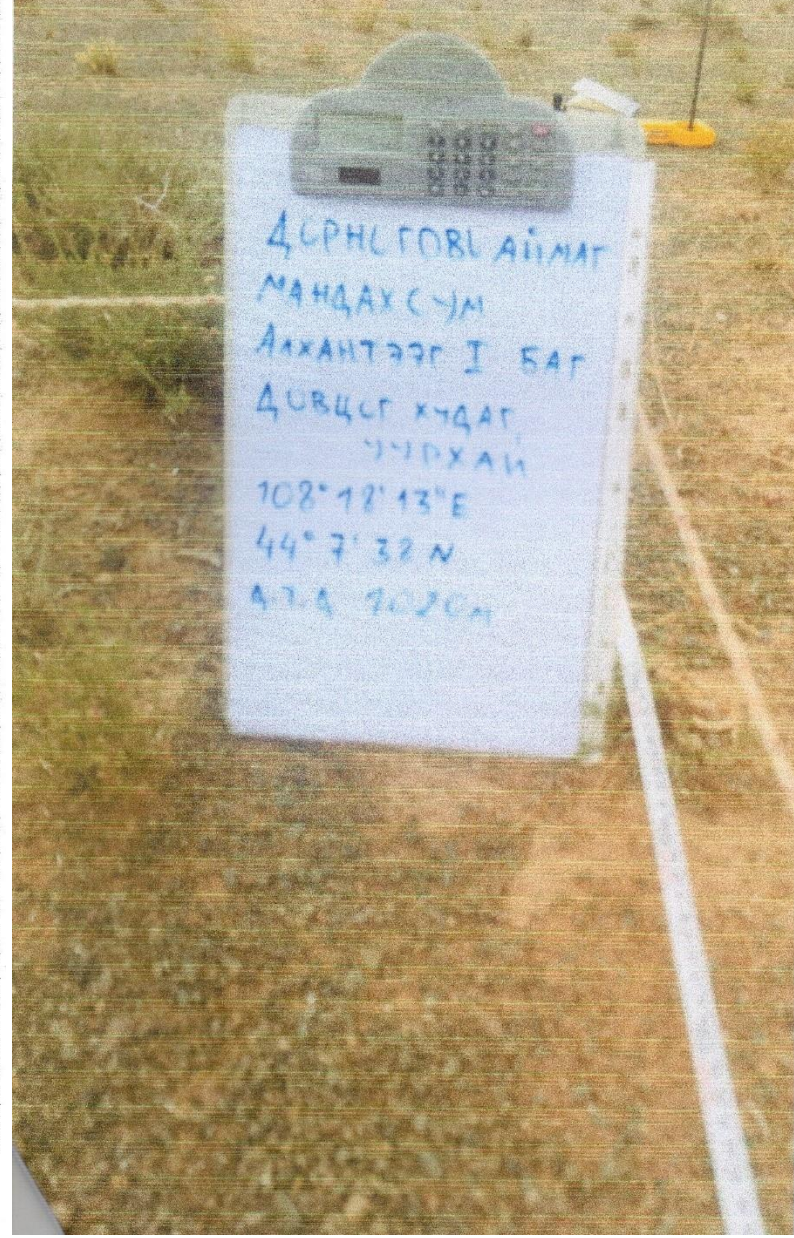 ДОРНОГОВЬ АЙМАГ
МАНДАХ СУМ
АЛХАНТЭЭГ I БАГ
ДОВЦОГ ХУДАГ
УУРХАЙ
108° 18' 13" E
44° 7' 38 N
Д.Т.Д 1020м